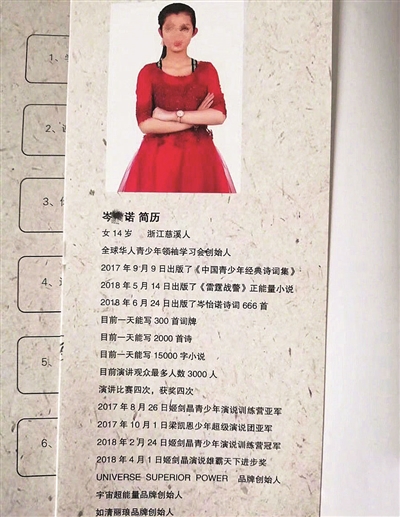 1、
2、
3、
5、
6、
岑 诺 简历
女 14 岁 浙江慈溪人
全球华人青少年领袖学习会创始人
2017 年 9 月 9 日出版了《中国青少年经典诗词集》
2018 年 5 月 14 日出版了《雷霆战警》正能量小说
2018 年 6 月 24 日出版了岑怡诺诗词 666 首
目前一天能写 300 首词牌
目前一天能写 2000 首诗
目前一天能写 15000 字小说
目前演讲观众最多人数 3000 人
演讲比赛四次，获奖四次
2017 年 8 月 26 日姬剑晶青少年演说训练营亚军
2017 年 10 月 1 日梁凯恩青少年超级演说团亚军
2018 年 2 月 24 日姬剑晶青少年演说训练营冠军
2018 年 4 月 1 日姬剑晶演说雄霸天下进步奖
UNIVERSE SUPERIOR POWER 品牌创始人
宇宙超能量品牌创始人
如清丽琅品牌创始人